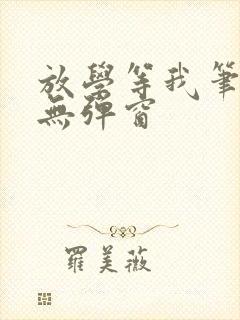 放學等我筆
無彈窗
羅美薇